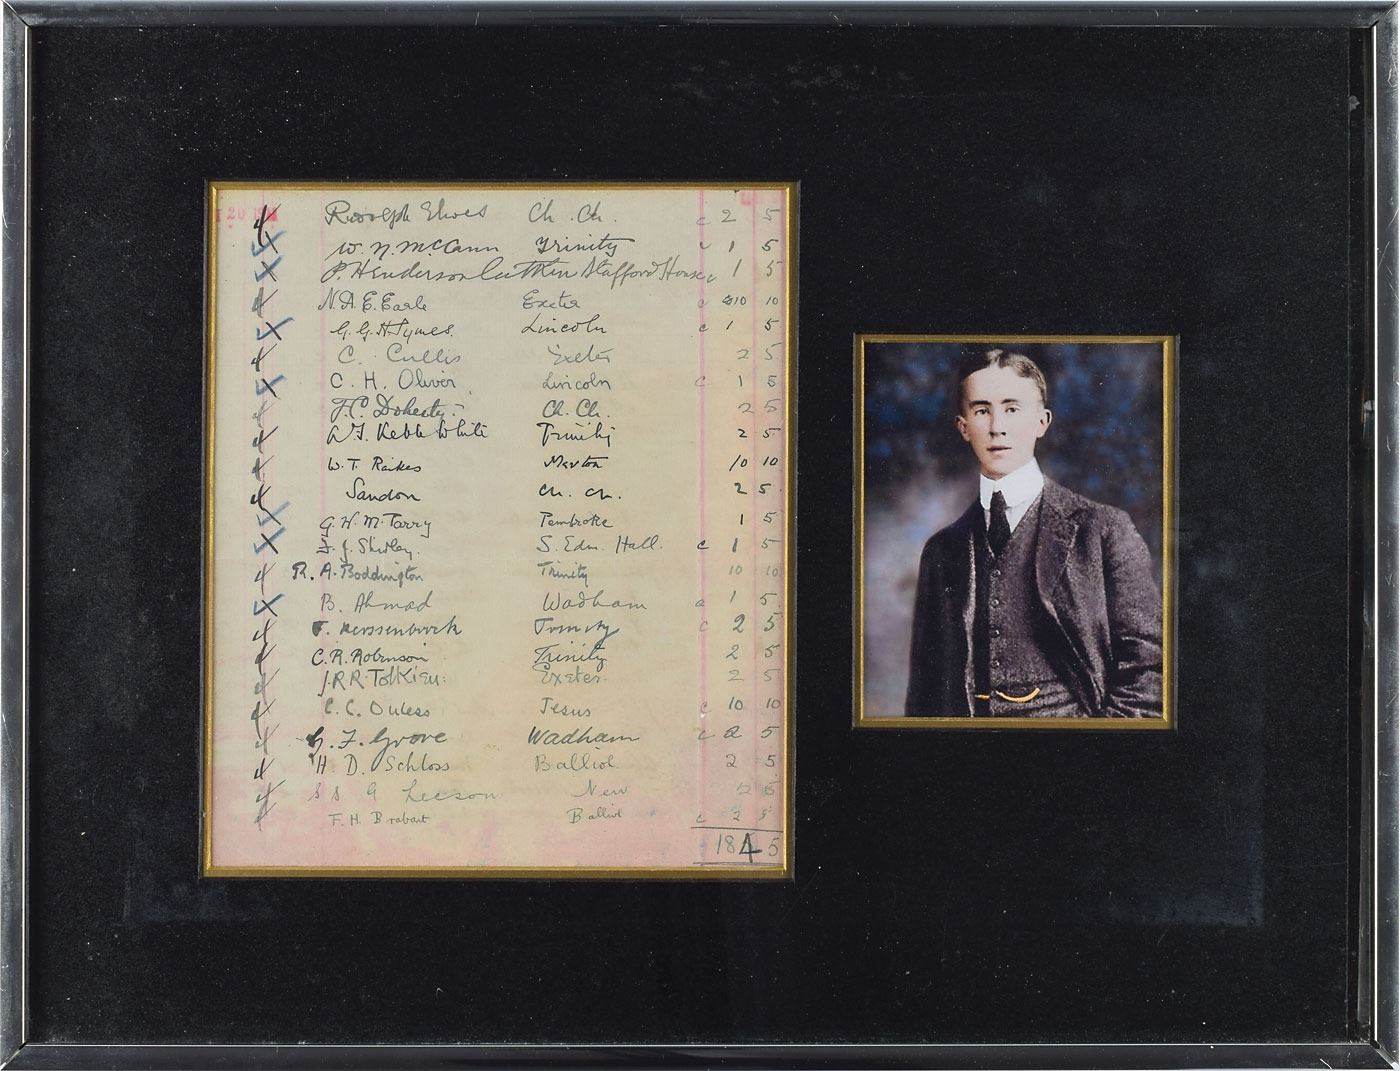 20
Rudolph Elwes Ch. Ch. c 2 5
W. N. McCann Trinity c 1 5
P. Henderson Stafford House c 1 5
N.A.E. Earle Exeter c 10 10
G.G.H. Symes. Lincoln c 1 5
C. Cullis Exeter 2 5
C. H. Oliver Lincoln c 1 5
J.C. Doherty. Ch. Ch. 2 5
Kebble White Trinity 2 5
W. T. Raikes Merton 10 10
Sandon Ch. Ch. 2 5.
G. W. M. Tarry Pembroke 1 5
S. Edm. Hall. c 1 5
R. A. Boddington Trinity 10 10
B. Ahmad Wadham c 1 5.
Trinity c 2 5
C. R. Robinson Trinity 2 5
J.R.R Tolkien. Exeter. 2 5
C. C. Jesus c 10 10
G. F. Grove Wadham c 2 5
H. D. Schloss Balliol 2 5
S S G Leeson New 2 5
F. H. Brabant Balliol c 2 5
184 5